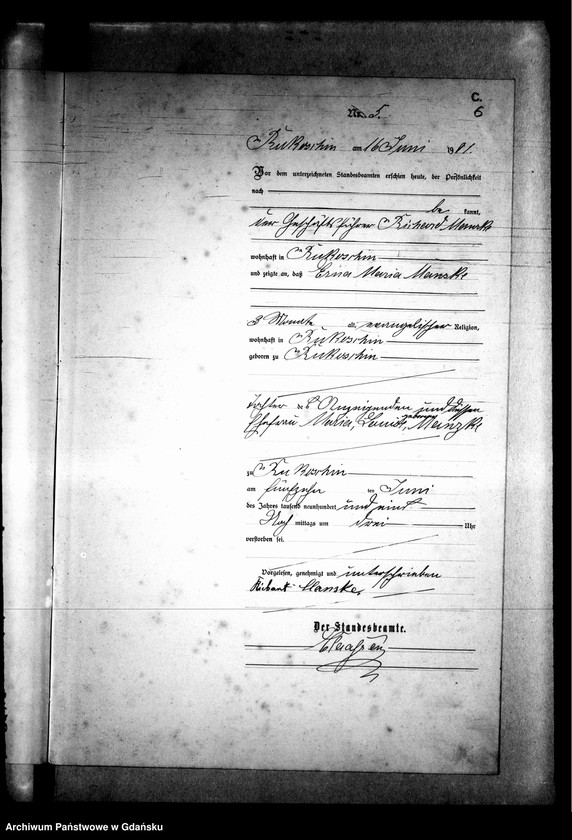 C.
6
Nr. 5.
Rukoschin am 16 Juni 1901.
Vor dem unterzeichneten Standesbeamten erschien heute, der Persönlichkeit
nach
be kannt,
der Geschäftsführer Richard Manske
wohnhaft in Rukoschin
und zeigte an, daß Erna Maria Manske
3 Monate alt, evangelischer Religion,
wohnhaft in Rukoschin
geboren zu Rukoschin
Tochter des Anzeigenden und dessen
Ehefrau Maria, geborene
zu Rukoschin
am fünfzehn ten Juni
des Jahres tausend neunhundert und eins
Nach mittags um drei Uhr
verstorben sei.
Vorgelesen, genehmigt und unterschrieben
Richard Manske
Der Standesbeamte.
Archiwum Państwowe w Gdańsku